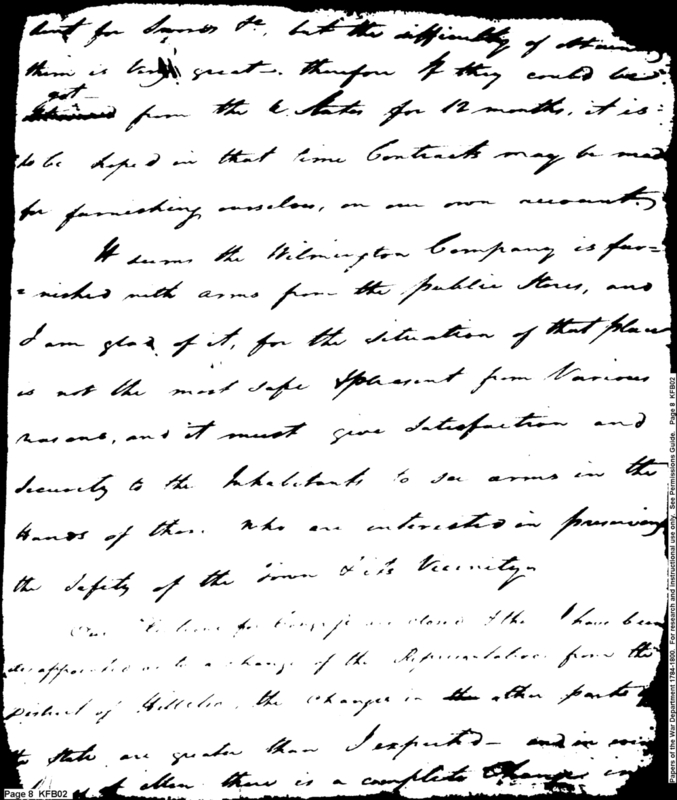 sent for Swords &c, but the difficulty of obtaining
them is very great - therefore if they could be
got
from the U. States for 12 months, it is
to be hoped in that time Contracts may be made
for furnishing ourselves, on our own account.
It seems the Wilmington Company is fur=
=nished with arms from the public Stores, and
I am glad of it, for the situation of that place
is not the most safe & pleasant from Various
reasons, and it must give Satisfaction and
Security to the Inhabitants to see arms in the
Hands of those who are interested in preserving
the Safety of the Town & it's Vicinity
Our for are closed & tho I have been
disappointed as to a change of the Representation from the
District of Hillsbo, the Changes in the other parts of
the State are greater than I expected - and in
of Men there is a complete Change in
Page 8 KFB02
Papers of the War Department 1784-1800. For research and instructional use only. See Permissions Guide. Page 8 KFB02